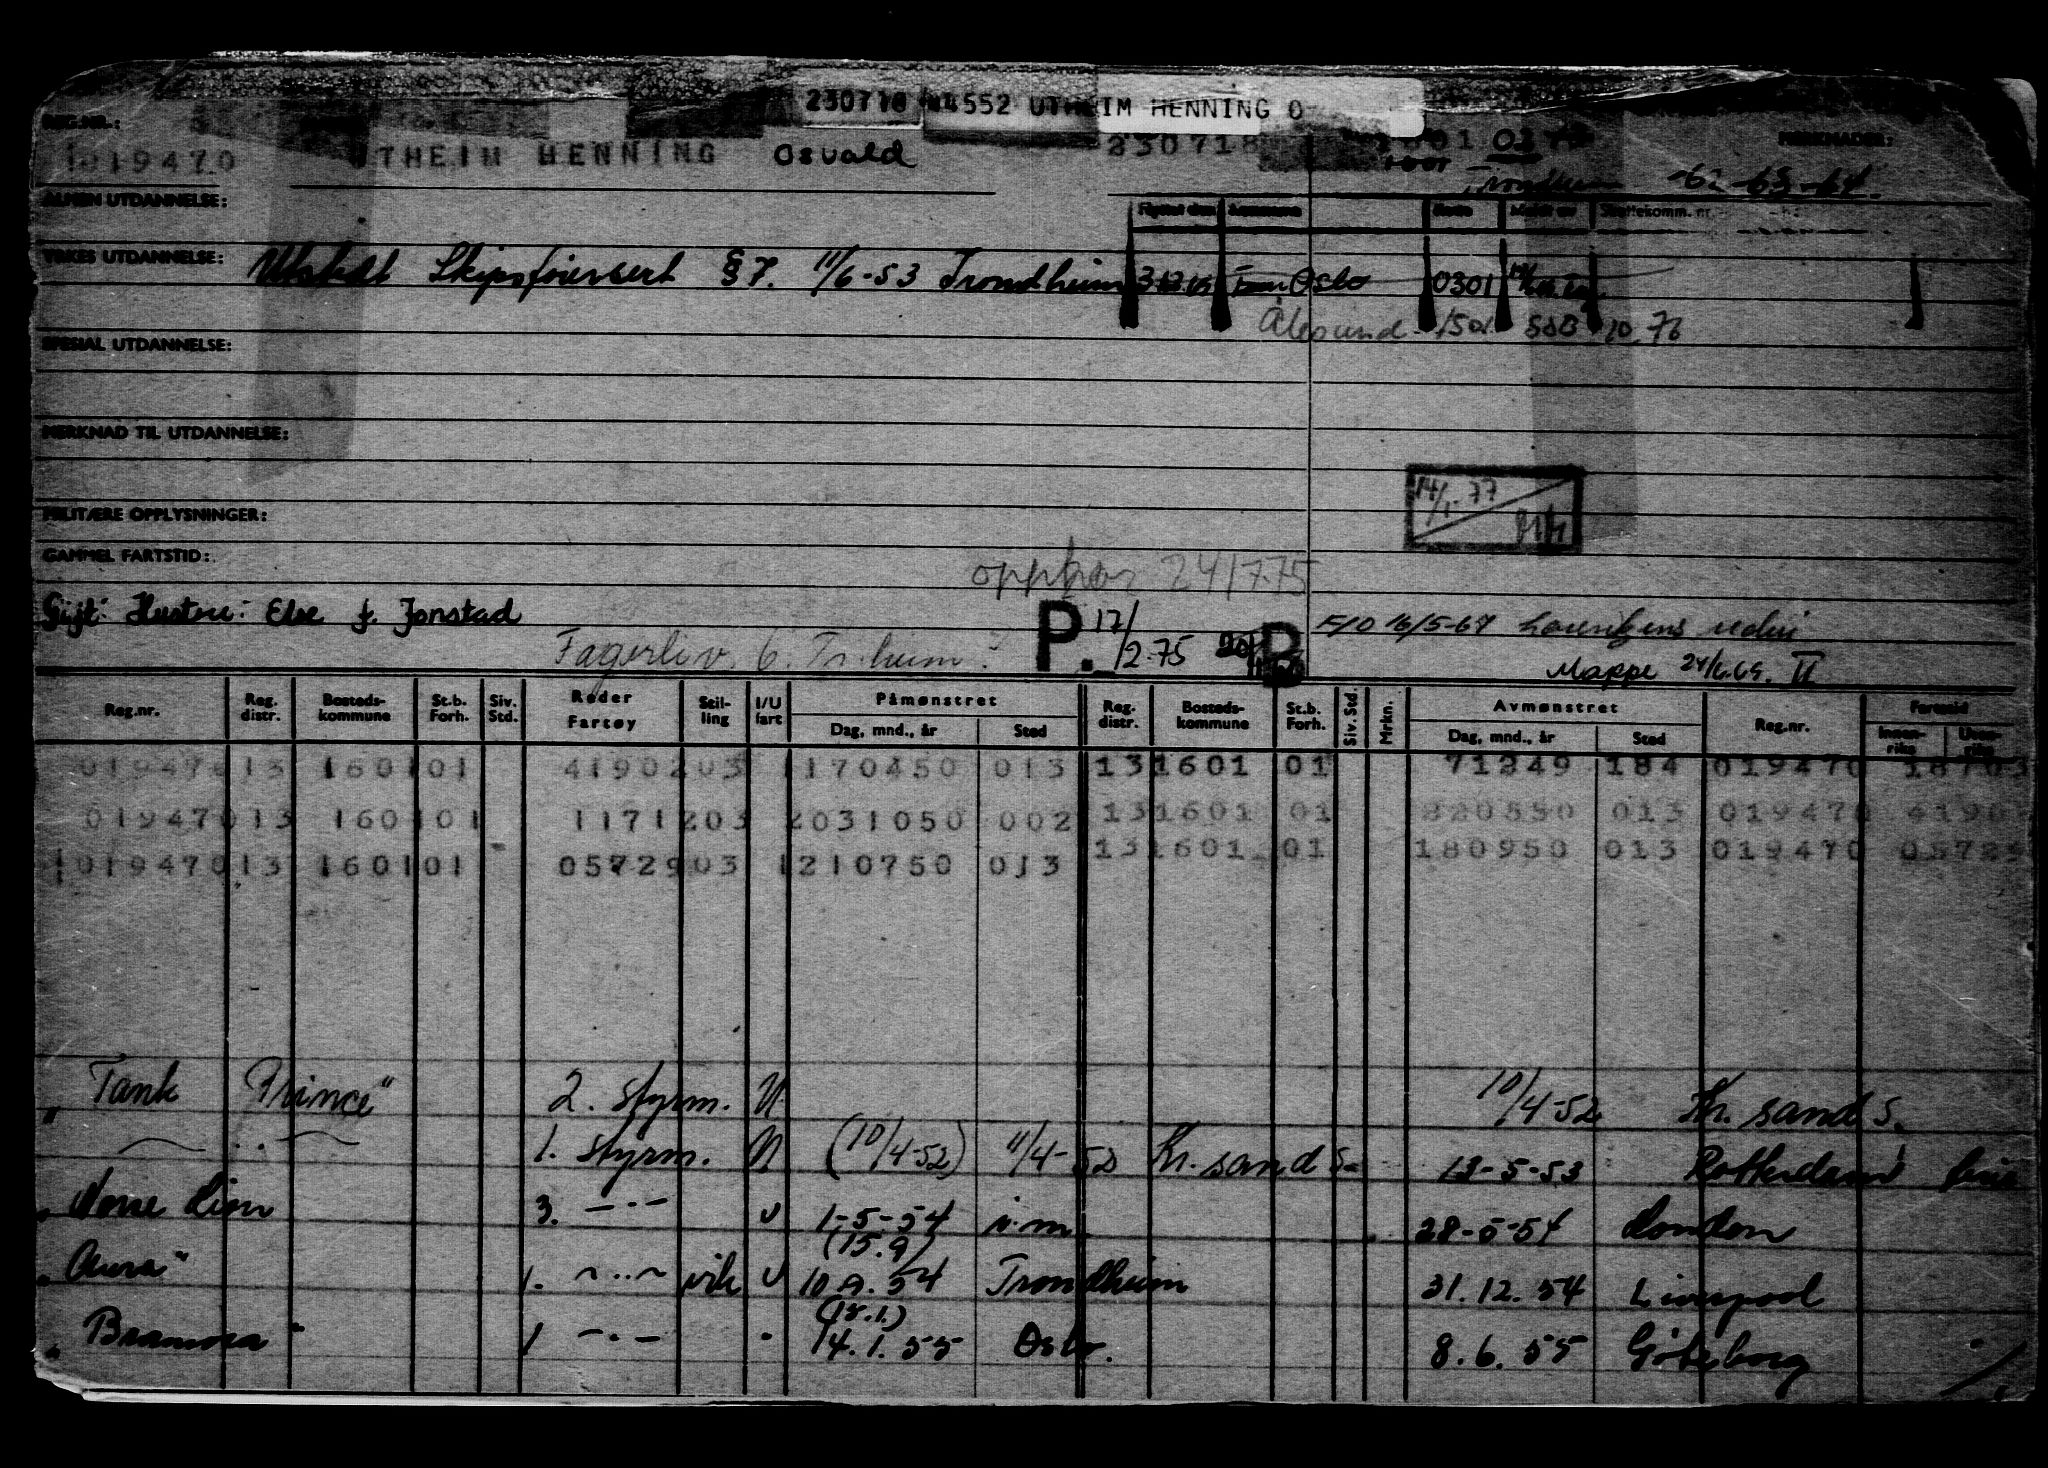 230718 44552 UTHEIM HENNING O
REG.NR.: MERKNADER:
019470 UTHEIM HENNING Osvald 230718
Trondheim -62-63-64.
ALMEN UTDANNELSE:
Flyttet den Kommune Skattekomm. nr.
YRKES UTDANNELSE: Utstedt Skipsførersert § 7. 11/6-53 Trondheim Oslo 0301
Ålesund - 1501 SdB 10.76
SPESIAL UTDANNELSE:
MERKNAD TIL UTDANNELSE:
14/1-77
MILITÆRE OPPLYSNINGER:
GAMMEL FARTSTID:
opphør 24/7.75
Gift: Hustru: Else f. Jonstad
P. 17/2-75 P
Fagerliv. 6. Tr.heim.
F/O 16/5-67 Lorentzens rederi
Mappe 24/6.69. II
Reg.nr. Reg. distr. Bosteds-kommune St.b. Forh. Siv. Std. Reder Fartøy Stil-ling I/U fart Påmønstret Dag, mnd., år Sted Reg. distr. Bosteds-kommune St.b. Forh. Siv. Std. Mrkn. Avmønstret Dag, mnd., år Sted Reg.nr. Fartstid Innen-riks Uten-riks
019470 13 1601 01 41902 03 1 170450 013 13 1601 01 71249 184 019470
019470 13 1601 01 11712 03 2 031050 002 13 1601 01 013 019470
019470 13 1601 01 05729 03 1 210750 013 13 1601 01 180950 013 019470 05729
„Tank Prince" 2. styrm. U 10/4-52 Kr.sand S.
1. styrm. U (10/4-52) 11/4-52 Kr.sand S. 13-5-53 Rotterdam
„Norse Lion 3. —"— U 1-5-54 28-5-54 London
(15.9)
„Aura" 1. —"— vik U 10.9.54 Trondheim 31.12.54 Liverpool
(18.1.)
1 —"— 14.1.55 Oslo. 8.6.55 Göteborg